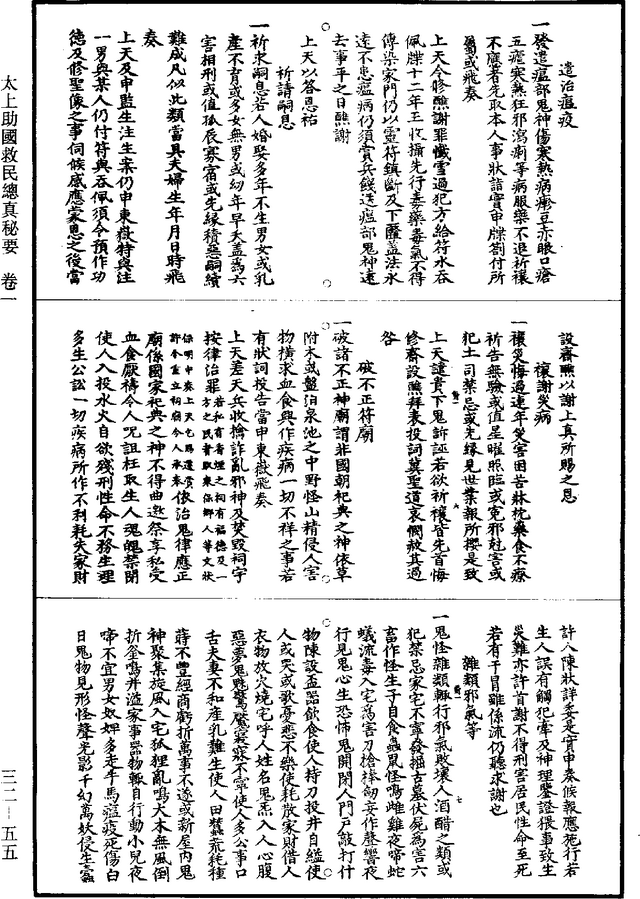 遣治瘟疫
一發遣瘟部鬼神傷寒熱病療豆赤眼口瘡
五瘧寒熱狂邪瀉痢等病服藥不退祈禳
不應者先取本人事狀諳實申牒劄付所
屬或飛奏
上天令修醮謝罪懺雪過犯方給符水吞
佩牒十二年王收攝先行毒藥毒氣不得
傳染家門仍以靈符鎮斷及下醮蓋法水
遠不患瘟病仍須賞兵餞送瘟部鬼神遠
去事平之日醮謝
上天以答恩祐
祈請嗣息
一祈求嗣息若人婚娶多年不生男女或乳
產不育或多女無男或幼年早夭蓋為六
害相刑或值孤辰寡宿或先緣積惡嗣續
難成凡似此類當具夫婦生年月日時飛
奏
上天及申監生注生案仍申東嶽特與注
一男與某人仍付符與吞佩須令預作功
德及修聖像之事伺候感應蒙恩之後當
設齋醮以謝上真所賜之恩
禳謝災病
一禳災悔過連年災害困苦牀枕藥食不療
祈告無驗或值星曜照臨或冤邪尅害或
犯土司禁忌或先緣見世業報所攖是致
上天譴責下鬼訴誣若欲祈禳皆先首悔
修齋設醮拜表投詞冀聖道哀憫赦其過
咎
破不正符廟
一破諸不正神廟謂非國朝祀典之神依草
附木或盤泊泉池之中野怪山精侵人害
物橫求血食興作疾病一切不祥之事若
有狀詞投告當申東嶽飛奏
上天差天兵收擒詐亂邪神及焚毀祠宇
按律治罪
依治鬼律應正
廟係國家祀典之神不得曲邀祭享私受
血食厭禱令人呪詛枉取生人魂魄禁閉
使人入投水火自欲殘刑性命不務生理
多生公訟一切疾病所作不利耗失家財
許人陳狀詳委是實申奏候報應施行若
生人誤有觸犯牽及神理鑒證猥事致生
災難亦許首謝不得刑害居民性命至死
若有干冒雖係流仍聽求謝也
雜類邪氣等
一鬼怪雜類輒行邪氣敗壞人酒醋之類或
犯禁忌家宅不寧發掘古墓伏屍為害六
畜作怪生子自食蟲鼠怪鳴雌雞夜啼蛇
蟻流毒入宅為害刀槍摔劒妄作聲響夜
行見鬼心生恐怖鬼開閉人門戶敲打什
物陳設盃器飲食使人持刀投井自縊使
人或哭或歌憂悲不樂使耗散家財借人
衣物放火燒宅呼人姓名鬼炁入人心腹
惡夢鬼魅驚魘寢寐不寧使人多公事口
舌夫妻不和產乳難生使人田蠶荒耗種
蒔不豐經商虧折萬事不遂或新屋內鬼
神聚集旋風入宅狐狸亂鳴大木無風倒
折釜鳴井溢家事器物輒自行動小兒夜
啼不宜男女奴婢多走牛馬瘟疫死傷白
日鬼物見形怪聲光影千幻萬妖侵生蠱
太上助國救民總真秘要 卷一
三二—五五